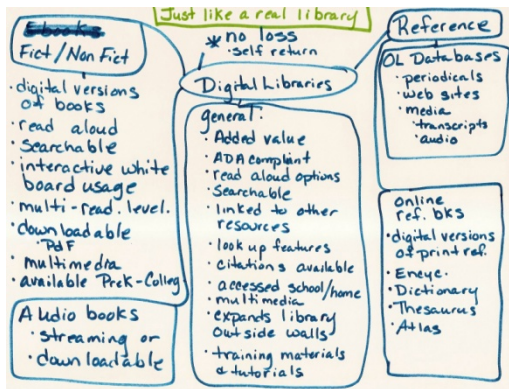 Just like a real library
* no loss
· self return
Digital Libraries
Ebooks
Fict/Non Fict
· digital versions
of books
· read aloud
· Searchable
· interactive white
board usage
· multi-read. level.
· downloadable
· Pdf
· multimedia
· available Prek-Colleg
Audio books
· streaming or
· downloadable
general:
· Added value
· ADA compliant
· read aloud options
· Searchable
· linked to other
resources
· look up features
· citations available
· accessed school/home
· multimedia
· expands library
outside walls
· training materials
& tutorials
Reference
OL Databases
· periodicals
· web sites
· media
· transcripts
· audio
online
ref. bks
· digital versions
of print ref.
· Encyc.
· Dictionary
· Thesaurus
· Atlas